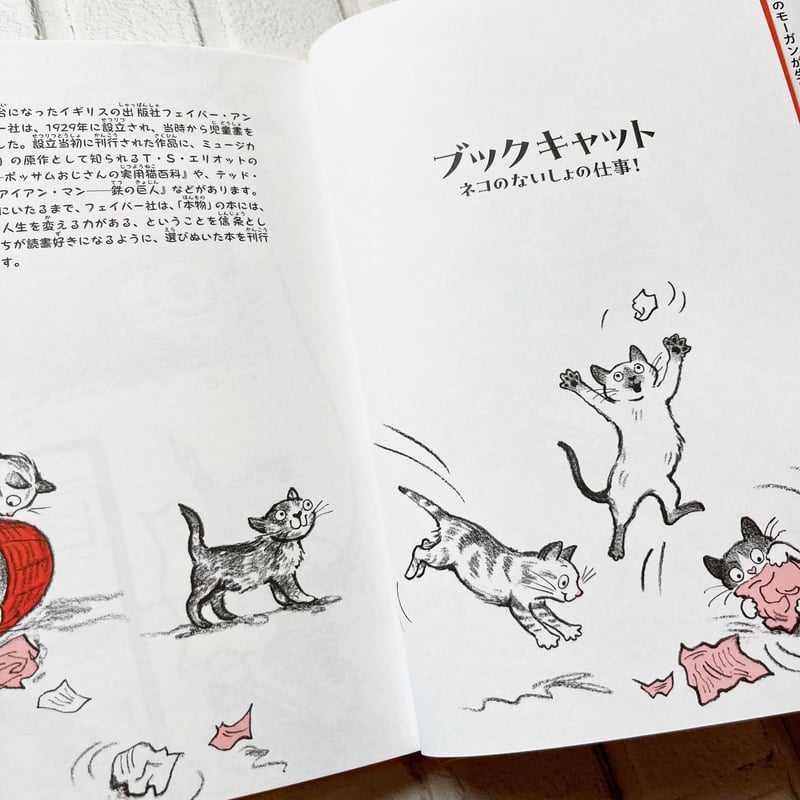 台になったイギリスの出版社フェイバー・アン
ー社は、1929年に設立され、当時から児童書を
した。設立当初に刊行された作品に、ミュージカ
』の原作として知られるT・S・エリオットの
―ポッサムおじさんの実用猫百科』や、テッド・
アイアン・マン――鉄の巨人』などがあります。
にいたるまで、フェイバー社は、「本物」の本には、
人生を変える力がある、ということを信条とし
ちが読書好きになるように、選びぬいた本を刊行
す。
ブックキャット
ネコのないしょの仕事!
のモーガンが